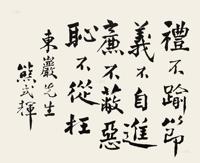 禮不踰節
義不自進
廉不蔽惡
恥不從枉
東巖先生
熊式輝